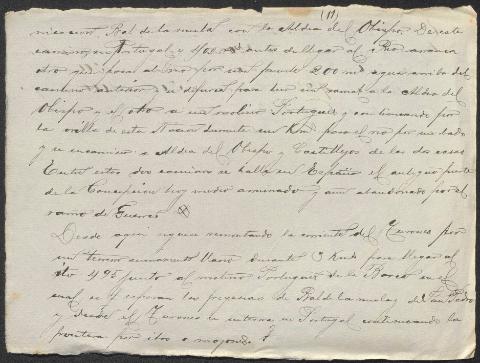 (11)
nicacion, Bal de la mula con la Aldea del Obispo. De este
camino, en Portugal y 400 m antes de llegar al Rio arranca
otro que pasa al Rio por un puente 200 m agua arriba del
camino anterior se bifurca para un ramal a la Aldea del
Obispo y el otro a un molino Portugues y continuando por
la orilla de este Nuevo durante un Km pasa el rio por un vado
y se encamina a Aldea del Obispo y Castillejos de las dos casas
Entre estos dos caminos se halla en España el antiguo fuerte
de la Concepcion hoy medio arruinado y aun abandonado por el
ramo de Guerra
Desde aqui sigue remontando la corriente del Turones por
un terreno sumamente llano durante 3 Kmd para llegar al
ito 495 junto al molino Portugues de la Barca en el
cual se separan las pregesias de Bal de la mula y de San Pedro
y desde el Turones se interna en Portugal continuando la
frontera por itos o mojones